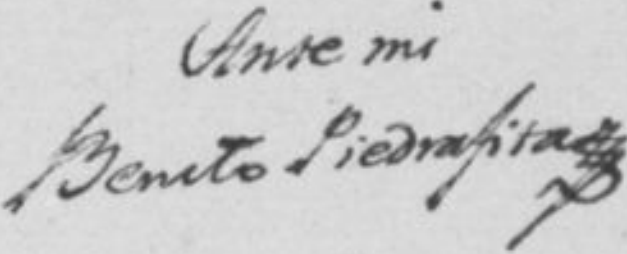 Ante mi
Benito Piedrafita